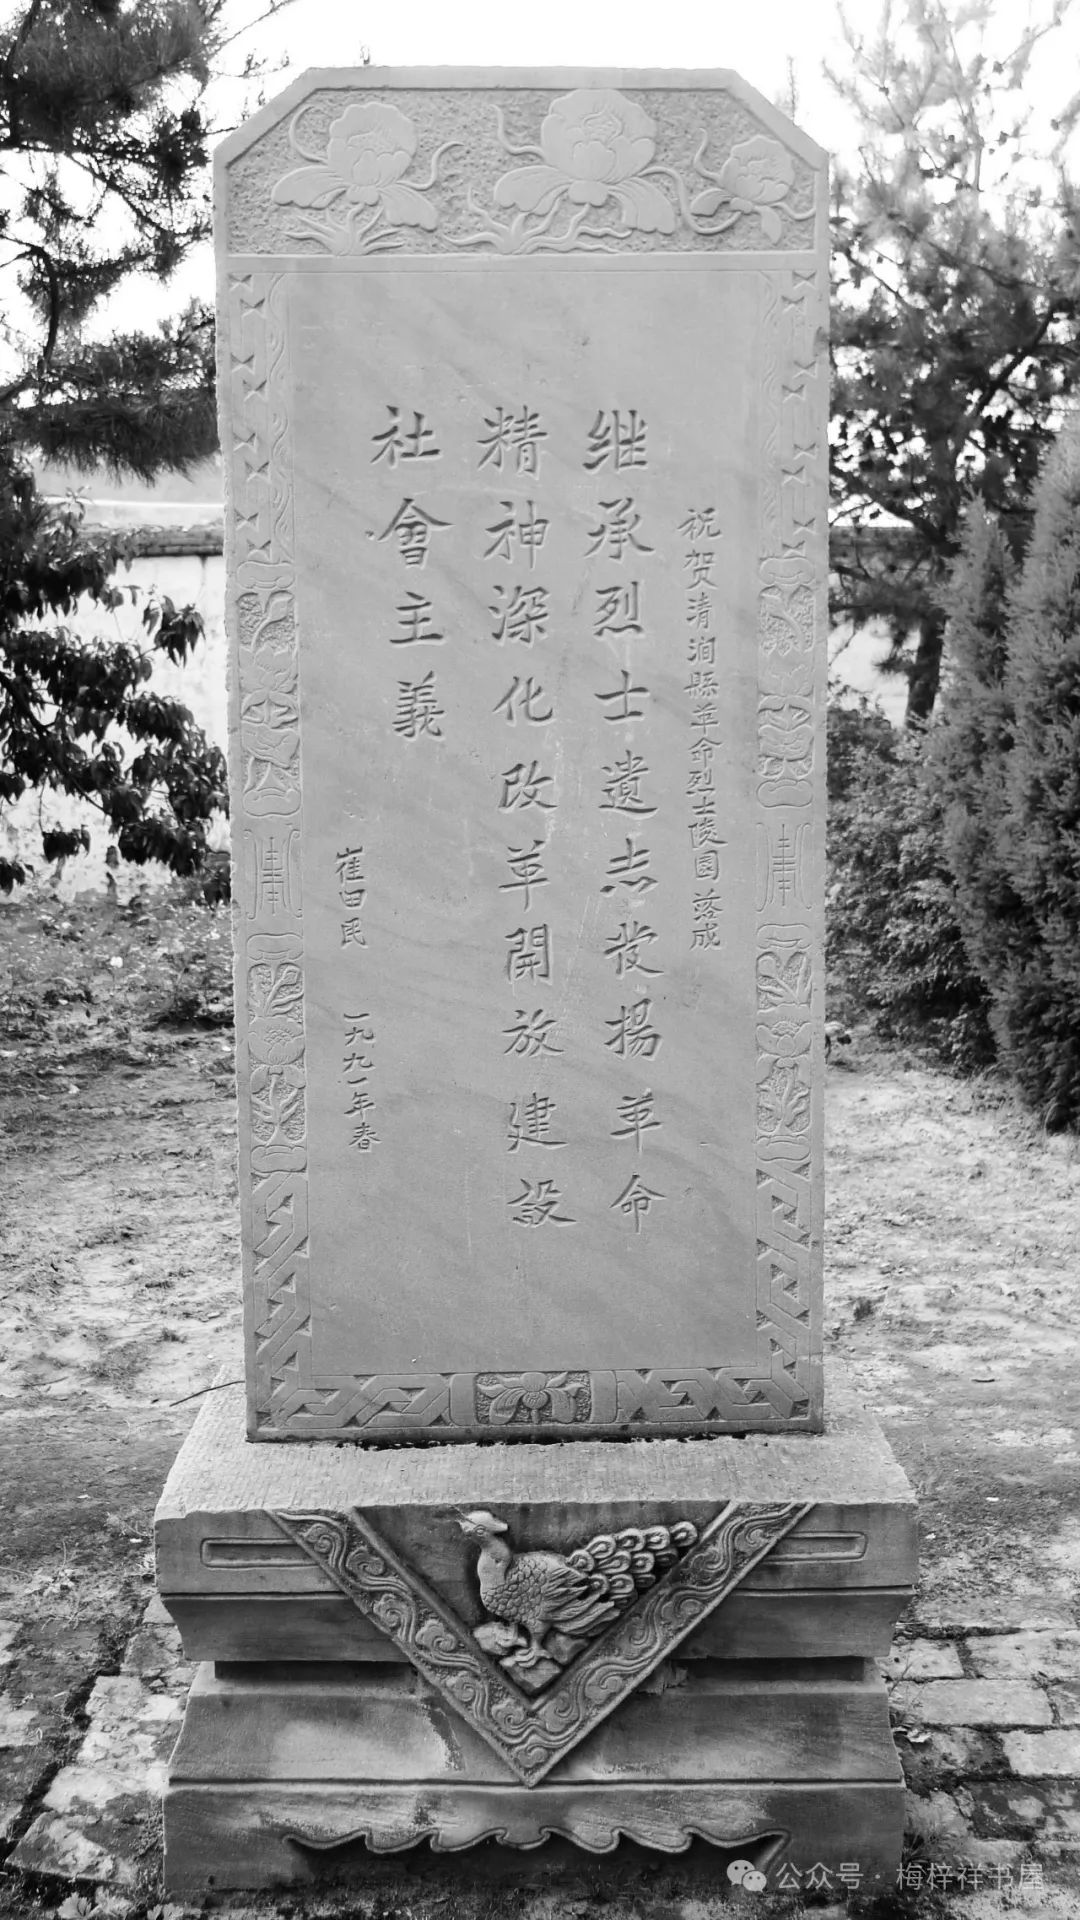 祝贺清涧縣革命烈士陵园落成
继承烈士遺志发揚革命
精神深化改革開放建設
社會主義
崔田民 一九九一年春
公众号·梅梓祥书屋